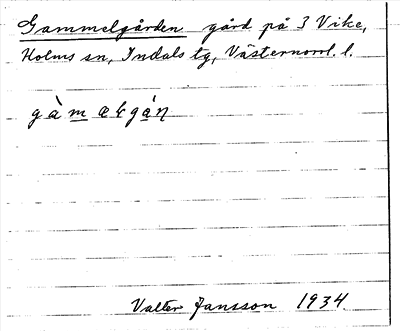 Gammelgården gård på 3 Vike,
Holms sn, Indals tg, Västernorrl. l.
gàmælgán
Valter Jansson 1934